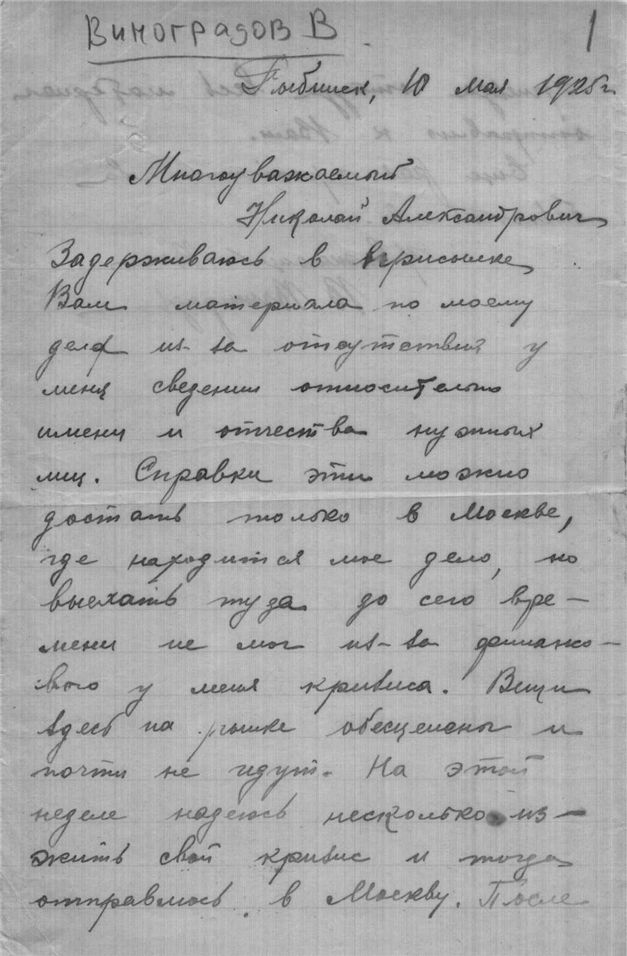 Виноградов В
1
Рыбинск, 10 мая 1925 г.
Многоуважаемый
Николай Александрович
Задерживаюсь в высылке
Вам материала по моему
делу из-за отсутствия у
меня сведении относительно
имени и отчества нужных
лиц. Справки эти можно
достать только в Москве,
где находится мое дело, но
выехать туда до сего вре-
мени не мог из-за финансо-
вого у меня кризиса. Вещи
здесь на рынке обесценены и
почти не идут. На этой
неделе надеюсь несколько из-
жить свой кризис и тогда
отправлюсь в Москву. После